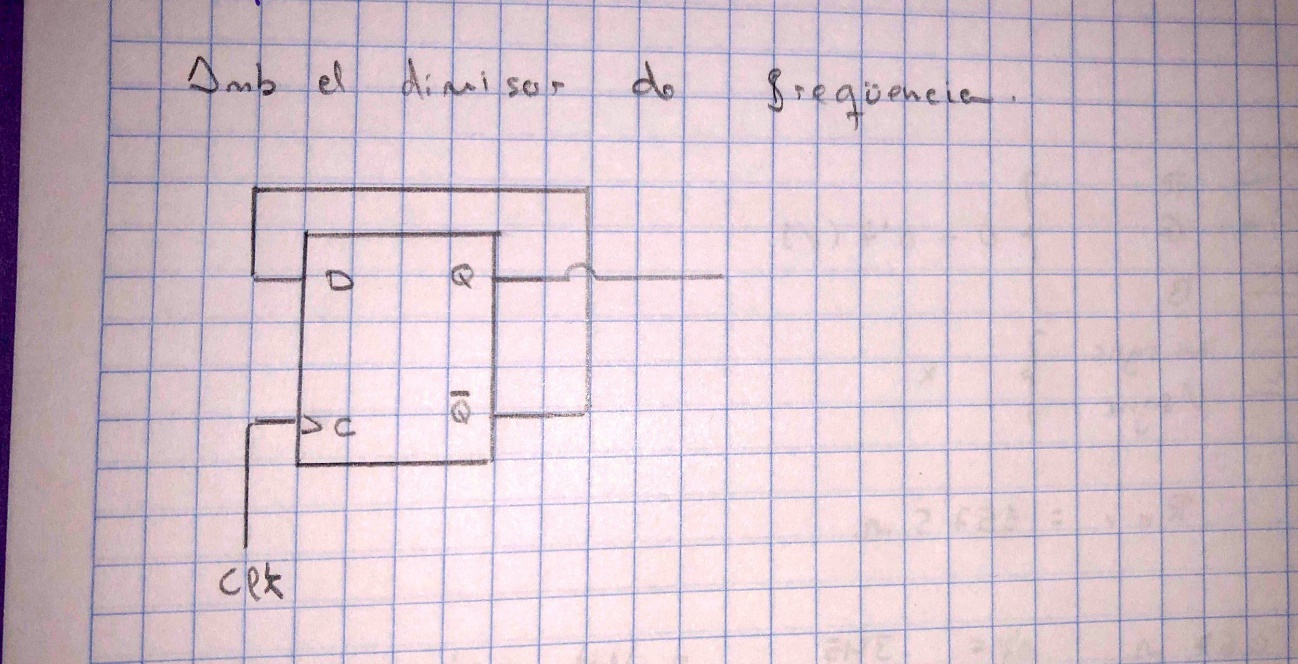 Amb el divisor de freqüencia.
D Q
> C Q̅
Clk